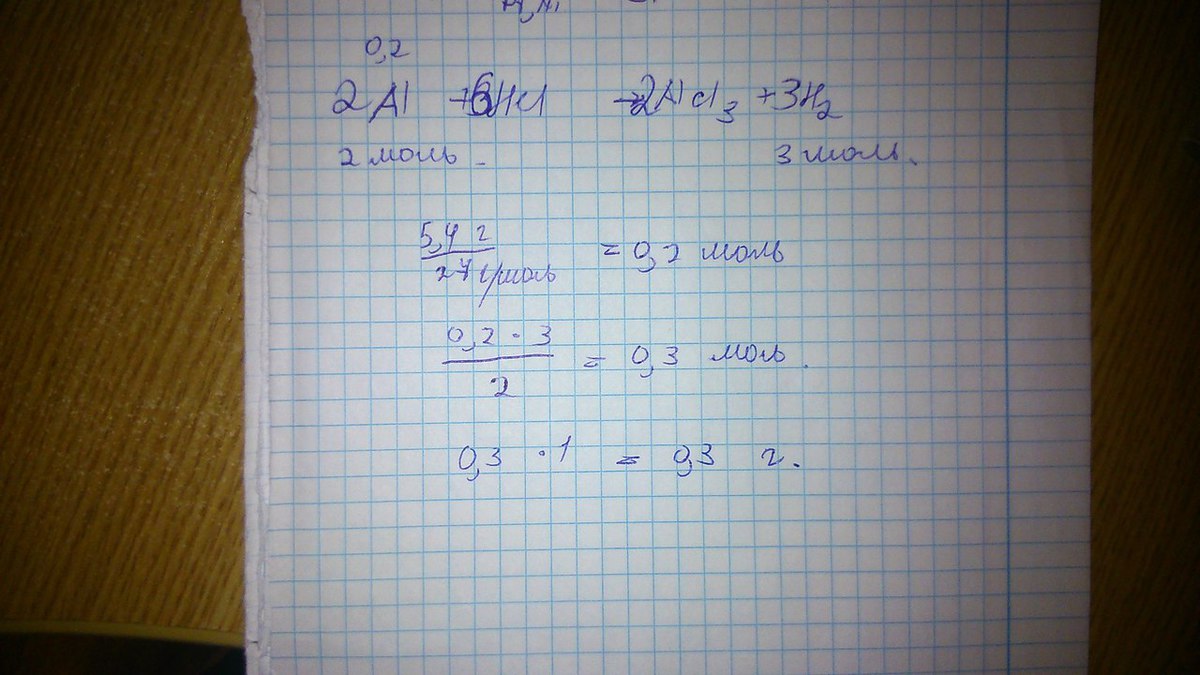 0,2
2Al + 6HCl → 2AlCl3 + 3H2
2 моль - 3 моль.
5,4 г
27 г/моль = 0,2 моль
0,2 · 3
2 = 0,3 моль.
0,3 · 1 = 0,3 г.